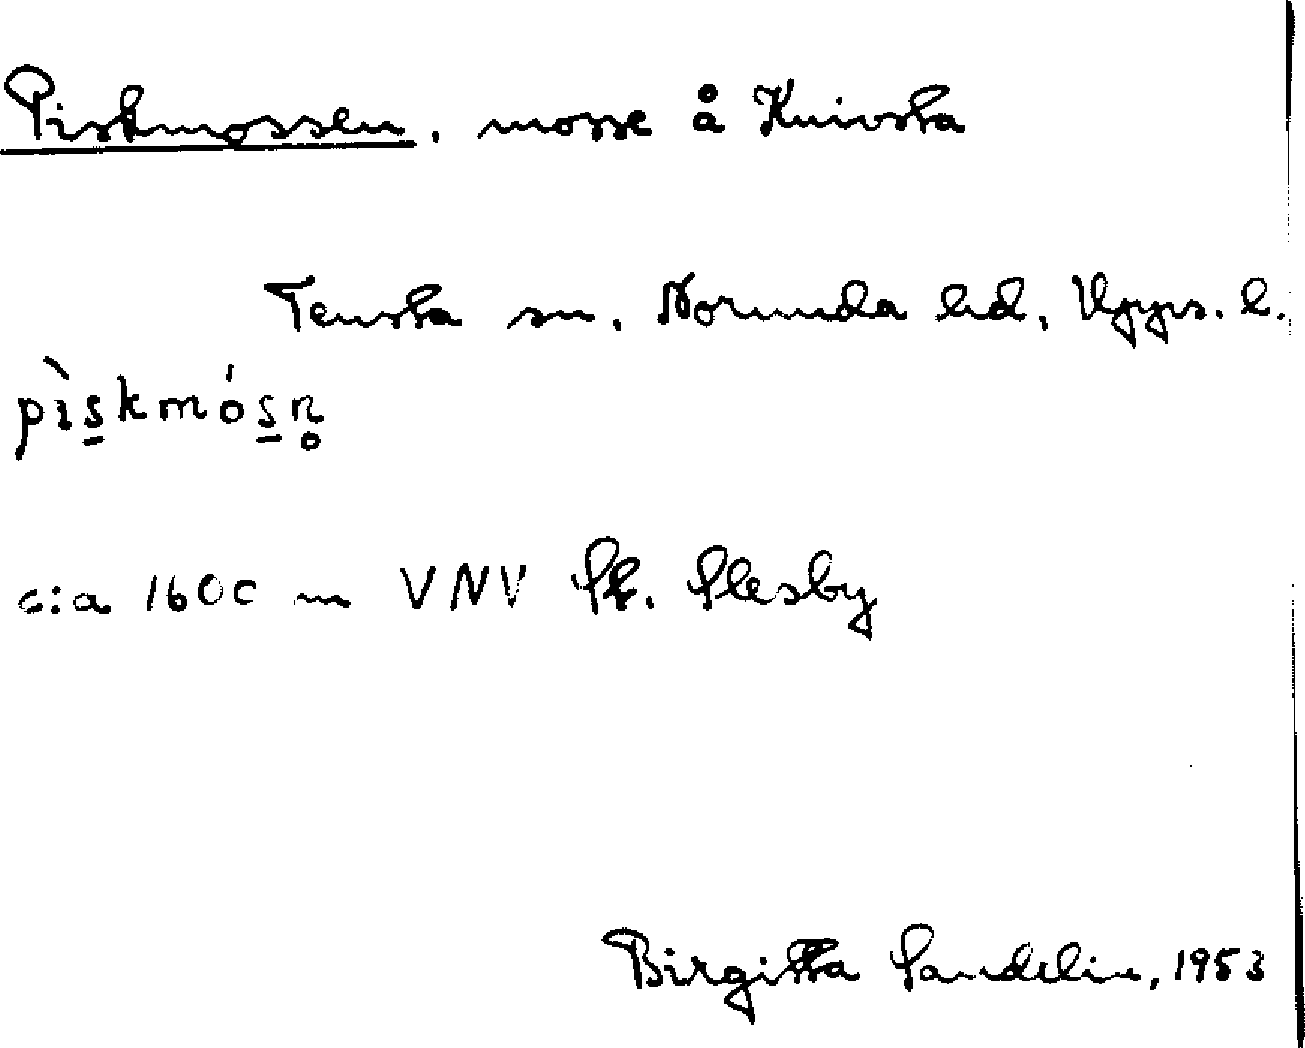 Piskmossen, mosse å Knivsta
Tensta sn, Norunda hd, Upps. l.
pìs̱kmós̱n̥
c:a 1600 m VNV St. Slesby
Birgitta Sandelin, 1953